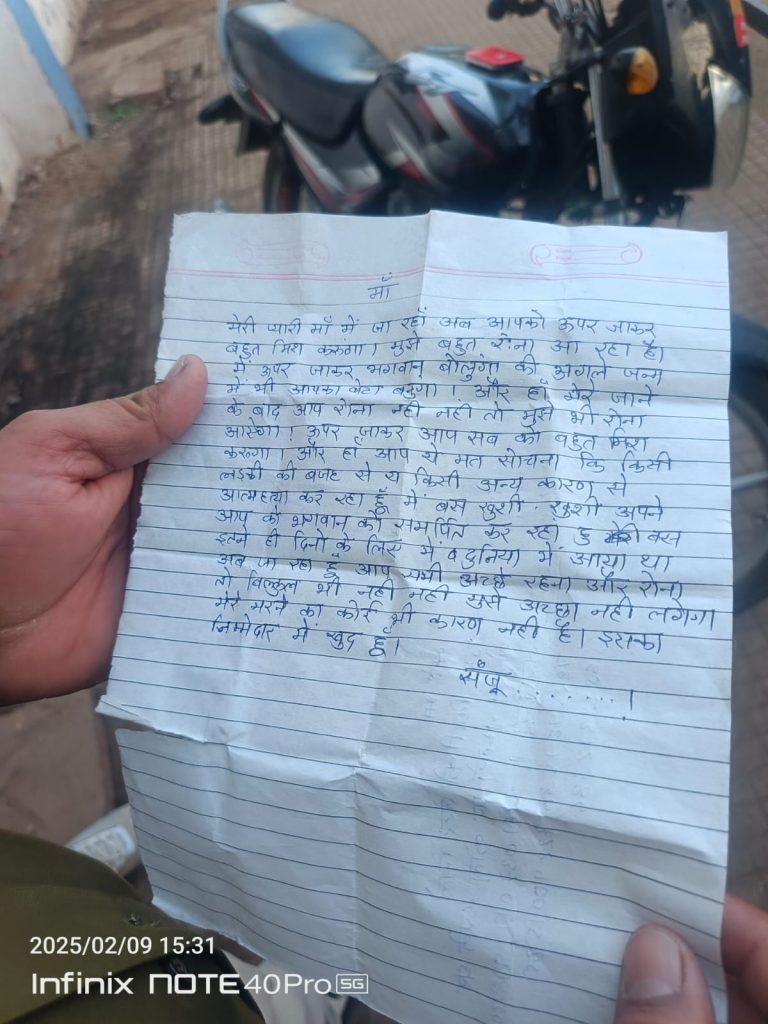 माँ
मेरी प्यारी माँ में जा रहाँ अब आपको ऊपर जाकर
बहुत मिश करूंगा। मुझे बहुत रोना आ रहा है।
में ऊपर जाकर भगवान बोलुंगा की अगले जन्म
में भी आपका बेटा बनुगा। और हाँ मेरे जाने
के बाद आप रोना नही नही तो मुझे भी रोना
आऐगा। ऊपर जाकर आप सब को बहुत मिश
करूगा। और हाँ आप ये मत सोचना कि किसी
लडकी की वजह से य किसी अन्य कारण से
आत्महत्या कर रहा हूँ में बस खुशी खुशी अपने
आप को भगवान को समर्पित कर रहा हु बस
इतने ही दिनो के लिए में दुनिया में आया था
अब जा रहा हूँ आप सभी अच्छे रहना और रोना
तो बिल्कुल भी नही नही मुझे अच्छा नही लगेगा
मेरे मरने का कोई भी कारण नही है। इसका
जिमेदार में खुद हूँ।
सँजू ........!
2025/02/09 15:31
Infinix NOTE40Pro 5G